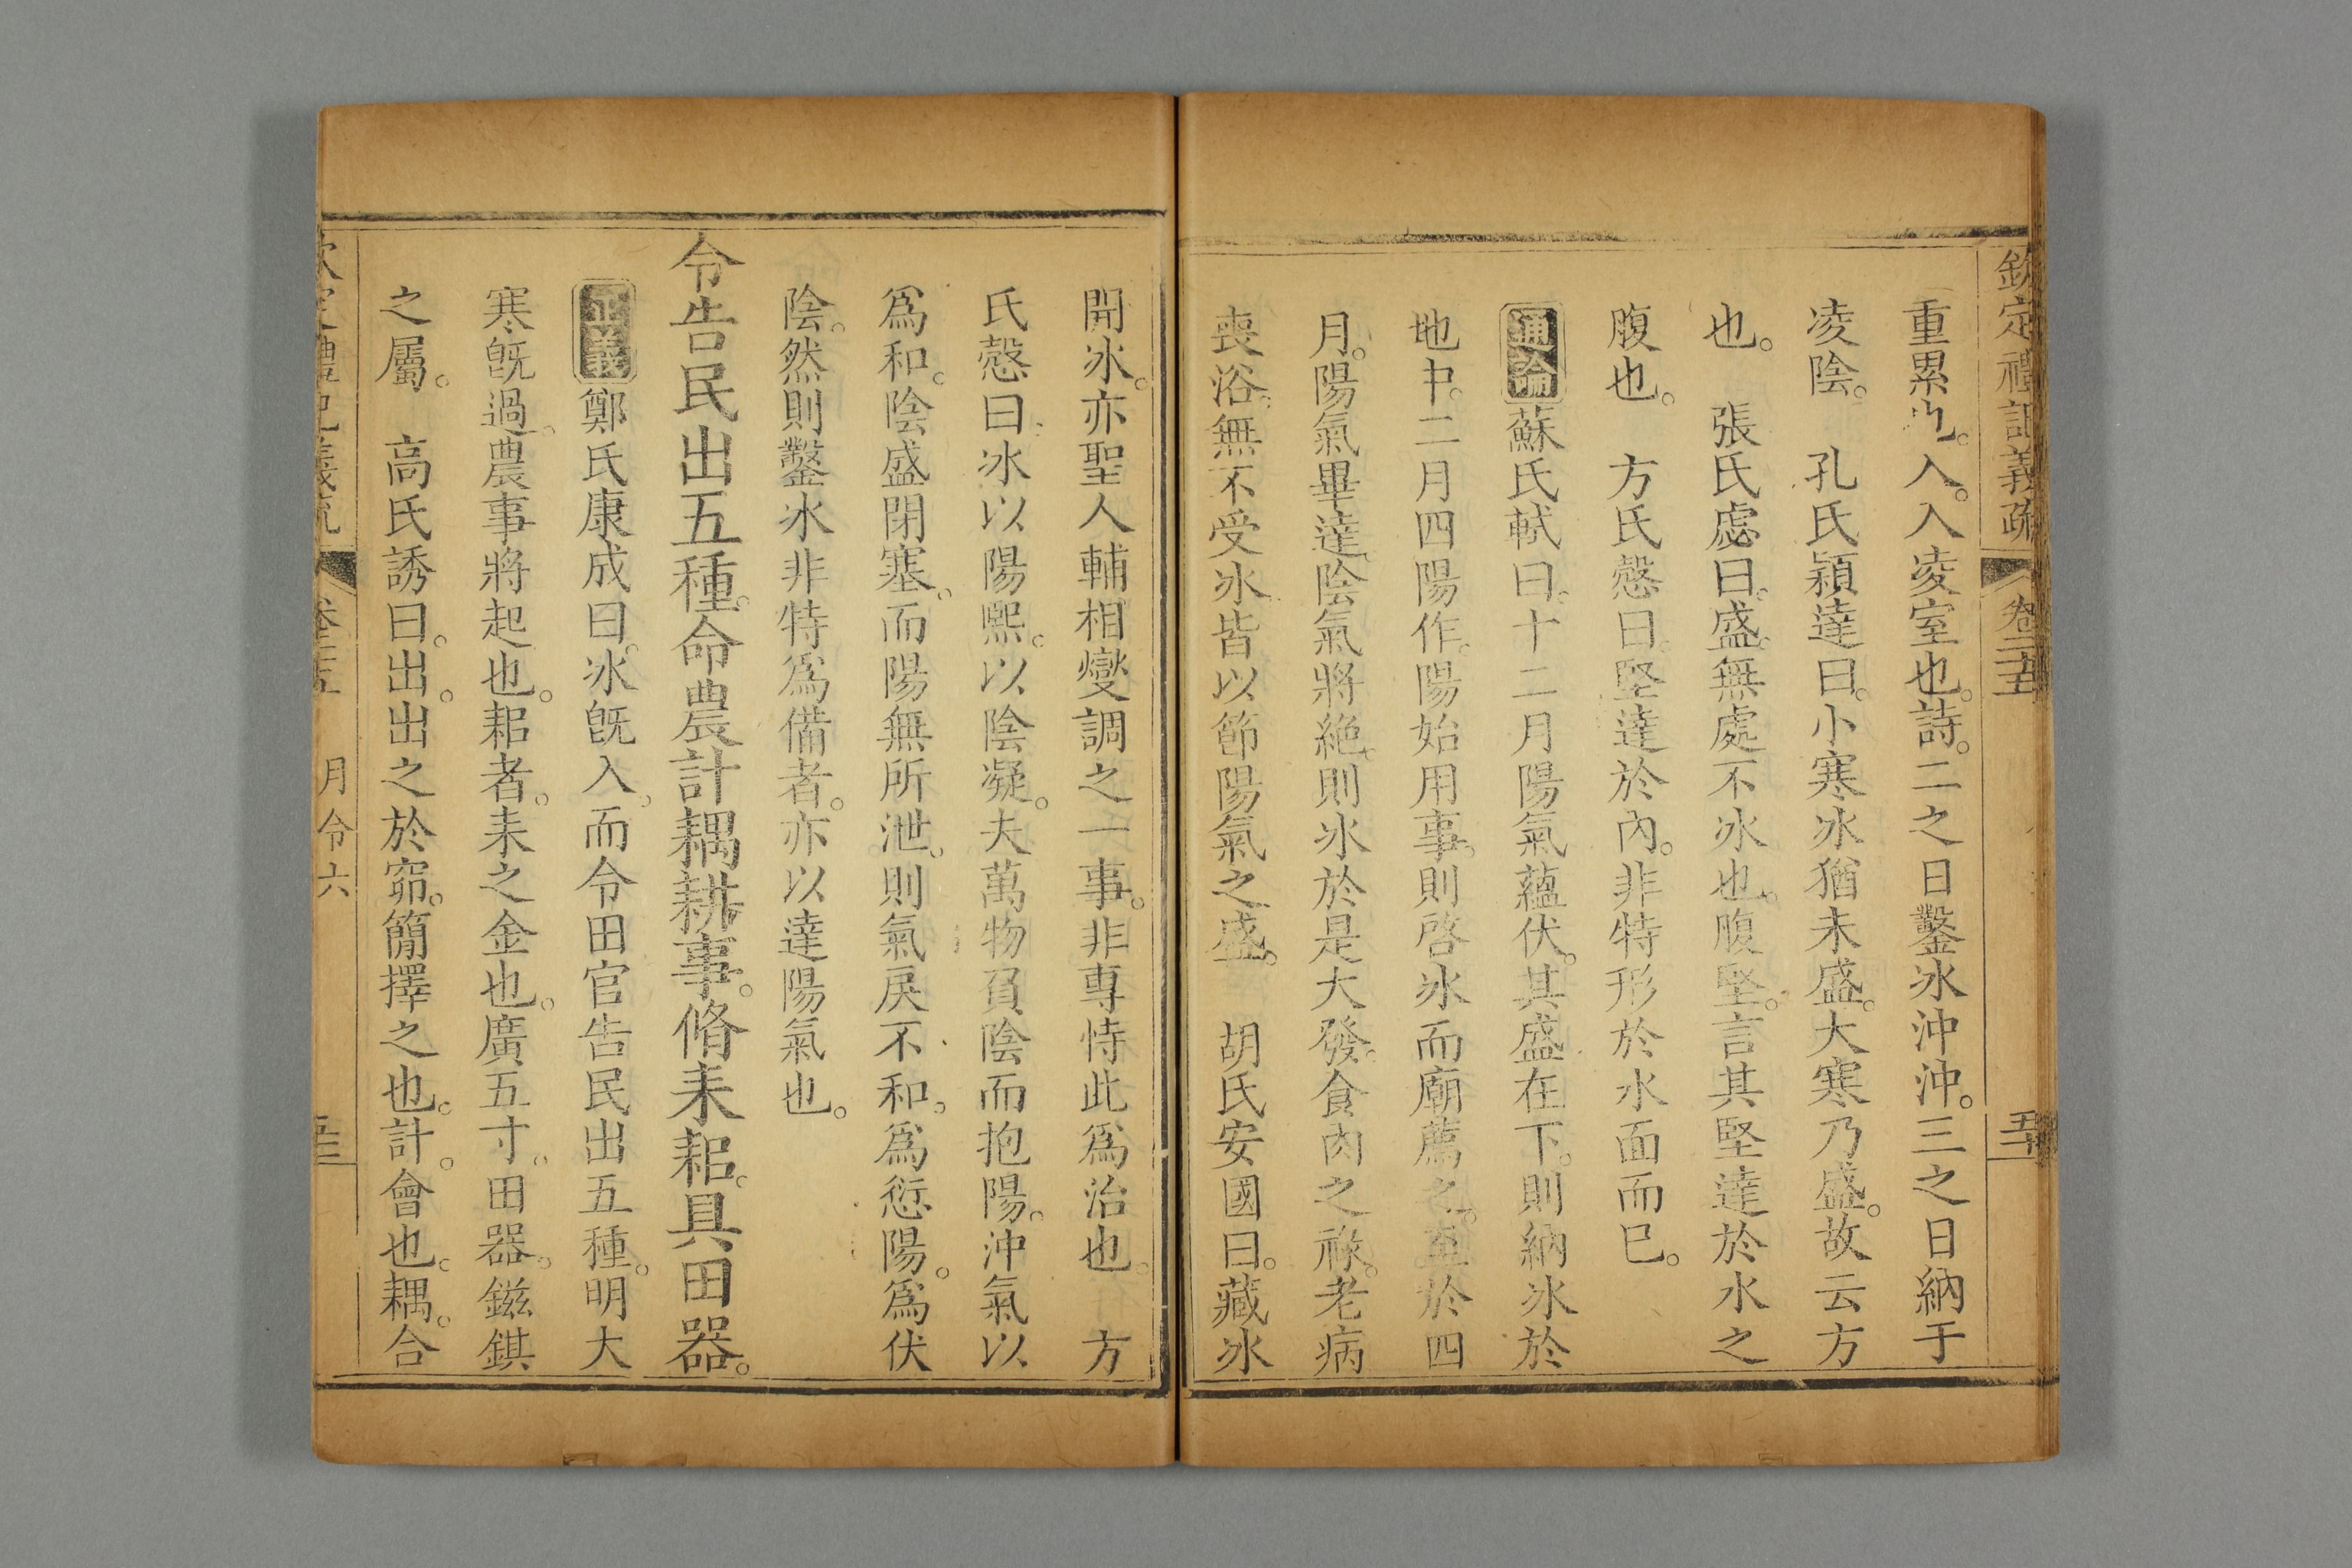 欽定禮記義疏 卷二十五 五十
重累也。入。入凌室也。詩。二之日鑿冰沖沖。三之日納于
凌陰。 孔氏穎達曰。小寒冰猶未盛。大寒乃盛。故云方
也。 張氏慮曰。盛。無處不冰也。腹堅。言其堅達於水之
腹也。 方氏慤曰。堅達於內。非特形於水面而已。
通論蘇氏軾曰。十二月陽氣蘊伏。其盛在下。則納冰於
地中。二月四陽作。陽始用事。則啓冰而廟薦之。至於四
月。陽氣畢達。陰氣將絶。則冰於是大發。食肉之祿。老病
喪浴。無不受冰。皆以節陽氣之盛。 胡氏安國曰。藏冰
開冰。亦聖人輔相燮調之一事。非專恃此爲治也。 方
氏慤曰。冰以陽熙。以陰凝。夫萬物負陰而抱陽。沖氣以
爲和。陰盛閉塞。而陽無所泄。則氣戾不和。爲愆陽。爲伏
陰。然則鑿冰非特爲備者。亦以達陽氣也。
令告民出五種。命農計耦耕事。脩耒耜。具田器。
正義鄭氏康成曰。冰旣入。而令田官告民出五種。明大
寒旣過。農事將起也。耜者。耒之金也。廣五寸。田器。鎡錤
之屬。 高氏誘曰。出。出之於窌。簡擇之也。計。會也。耦。合
月令六